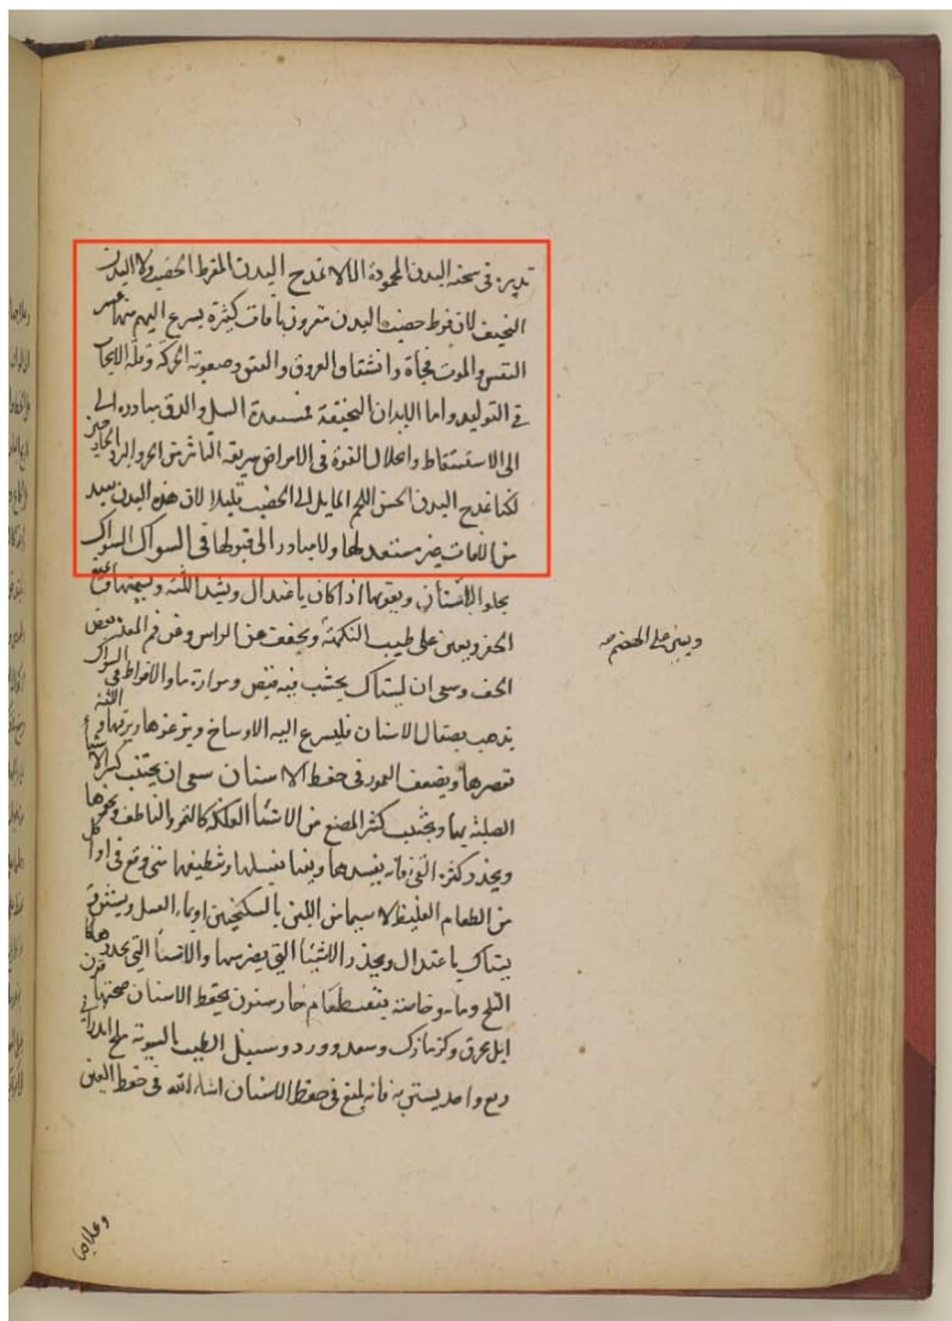 تدبيره في سحنة البدن المحمودة انا لا نمدح البدن المفرط الخصب ولا البدن
النحيف لان فرط خصب البدن مقرون بافات كثيرة يسرع اليهم منها عسر
النفس والموت فجأة وانشقاق العروق والفتق وصعوبة الحركة وقلة الانجاب
في التوليد واما الابدان النحيفة مستعدة السل والدق مبادرة الى
الى الاستسقاط وانحلال القوة في الامراض سريعة التاثر من الحر والبرد
لكنا نمدح البدن الحسن اللحم المايل الى الخصب قليلا لان هذه البدن بعيد
من الافات غير مستعد لها ولا مبادر الى قبولها في السواك السواك
يجلو الاسنان ويقويها اذا كان باعتدال ويشد اللثة ويمنع
الحفر ويعين على طيب النكهة ويجفف عن الراس وعن فم المعدة بعض
ويعين على الهضم صح
ان يستاك بخشب فيه قبض ومرارة ما والافراط في السواك
يذهب بصقال الاسنان فيسرع اليه الاوساخ
ويضعف العمور في حفظ الاسنان ان يجتنب كسر الاشياء
الصلبة بها ويجتنب كثرة المضغ من الاشياء العلكة كالتمر والناطف ونحوها
ويحذر كثرة القئ فانه يفسدها
من الطعام الغليظ لا سيما من اللبن بالسكنجبين او بماء العسل
يستاك باعتدال ويحذر الاشيا التي يضرسها والاشيا التي يخدرها
الثلج وماءه وخاصة بعقب طعام حار سنون يحفظ الاسنان صحتها قرن
ايل محرق وكزمازك وسعد وورد وسنبل الطيب بالسوية ملح اندراني
ربع واحد يستن به فانه بليغ في حفظ الاسنان انشاء الله في حفظ العين
وعلاجها